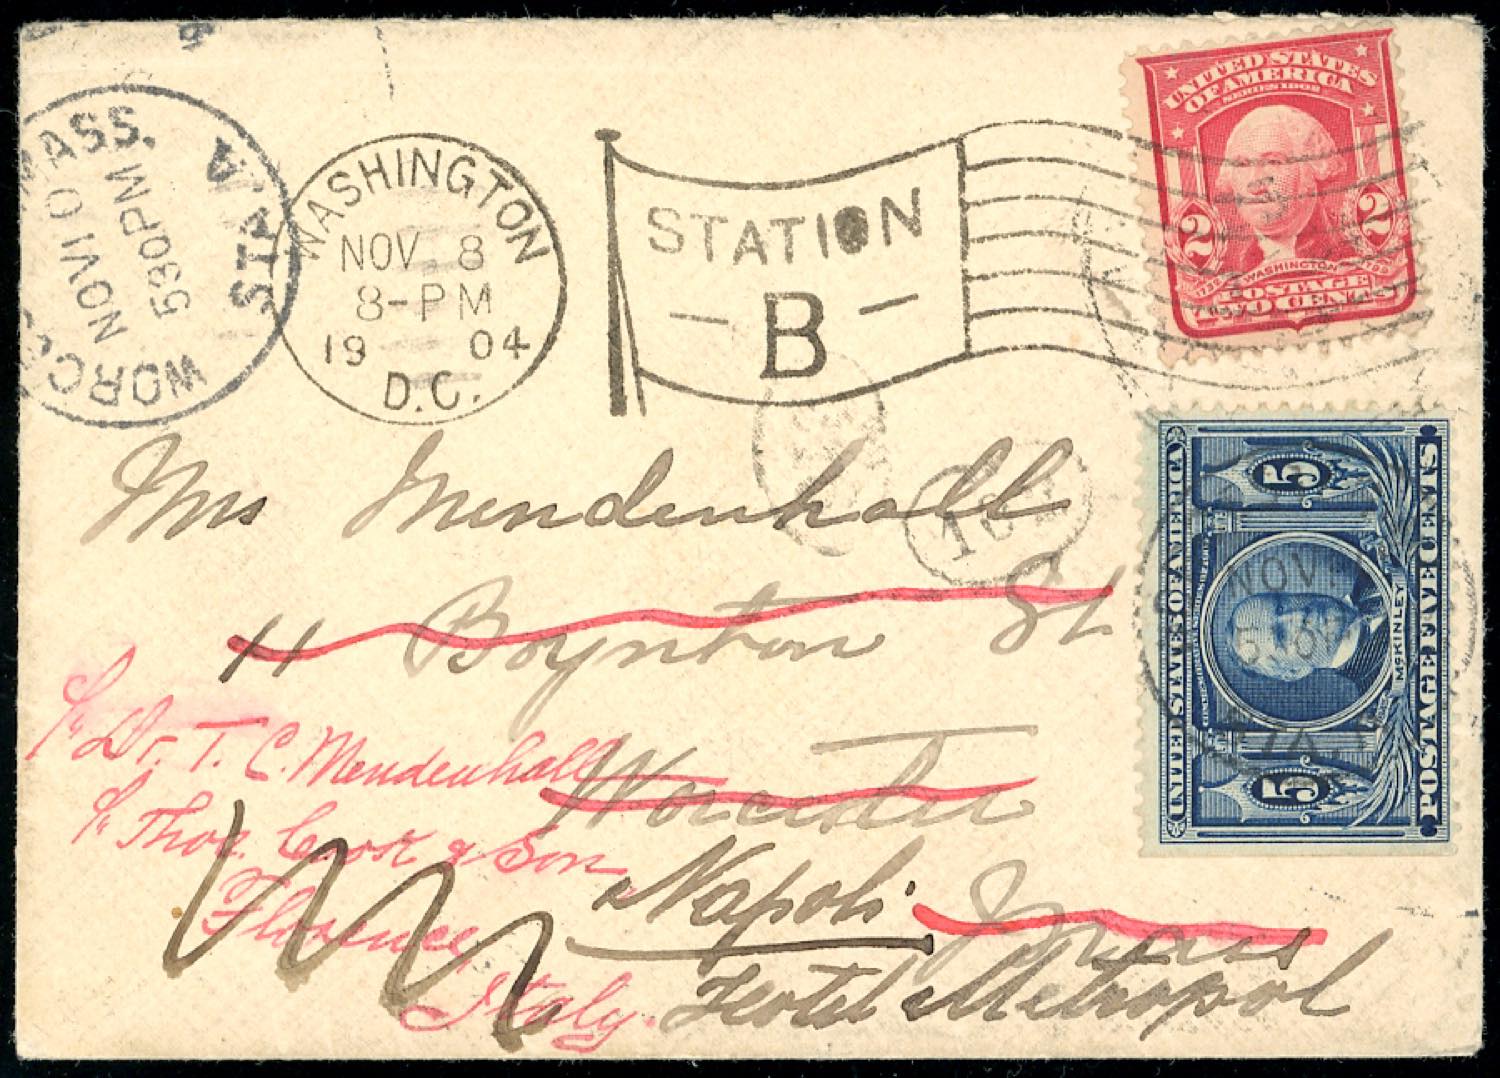 WORC MASS.
NOV 10
530PM
STA. A
WASHINGTON
NOV 8
8-PM
19 04
D.C.
STATION
- B -
UNITED STATES
OF AMERICA
SERIES 1902
2 2
WASHINGTON
POSTAGE
TWO CENTS
Mrs Mendenhall
11 Boynton St
Worcester
Mass
℅ Dr. T. C. Mendenhall
℅ Thos. Cook & Son
Florence,
Italy.
Napoli
Hotel Metropol
UNITED STATES OF AMERICA
5 5
McKINLEY
POSTAGE FIVE CENTS
NOV
STA. A